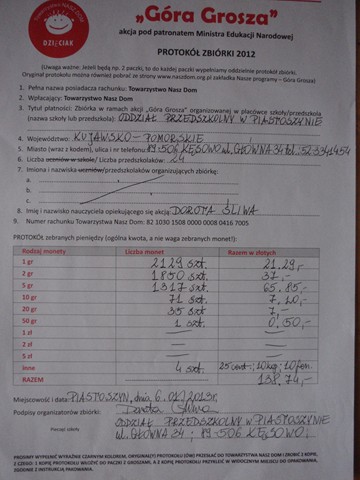 Towarzystwo NASZ DOM
DZIECIAK
„Góra Grosza”
akcja pod patronatem Ministra Edukacji Narodowej
PROTOKÓŁ ZBIÓRKI 2012
(Uwaga ważne: Jeżeli będą np. 2 paczki, to do każdej paczki wypełniamy oddzielnie protokół zbiórki.
Oryginał protokołu można również pobrać ze strony www.naszdom.org.pl zakładka Nasze programy – Góra Grosza)
1. Pełna nazwa posiadacza rachunku: Towarzystwo Nasz Dom
2. Wpłacający: Towarzystwo Nasz Dom
3. Tytuł płatności: Zbiórka w ramach akcji „Góra Grosza” organizowanej w placówce szkoły/przedszkola
(nazwa szkoły lub przedszkola) ODDZIAŁ PRZEDSZKOLNY W PIASTOSZYNIE
4. Województwo: KUJAWSKO-POMORSKIE
5. Miasto (wraz z kodem), ulica i nr telefonu: 89-506 KĘSOWO ul. GŁÓWNA 34 tel. 52-3341454
6. Liczba uczniów w szkole/ Liczba przedszkolaków: 24
7. Imiona i nazwiska uczniów/przedszkolaków organizujących zbiórkę:
a.
b.
c.
8. Imię i nazwisko nauczyciela opiekującego się akcją: DOROTA ŚLIWA
9. Numer rachunku Towarzystwo Nasz Dom: 82 1030 1508 0000 0008 0416 7005
PROTOKÓŁ zebranych pieniędzy (ogólna kwota, a nie waga zebranych monet!):
Rodzaj monety Liczba monet Razem w złotych
1 gr 2129 szt. 21.29,-
2 gr 1850 szt. 37.-
5 gr 1317 szt. 65.85,-
10 gr 71 szt. 7,10,-
20 gr 35 szt 7,-
50 gr 1 szt. 0,50,-
1 zł
2 zł
5 zł
Inne 4 szt. 25 cent; 10 kop; 10 fen.
RAZEM 138.74,-
Miejscowość i data: PIASTOSZYN, dnia 6.01.2013r.
Podpisy organizatorów zbiórki: Dorota Śliwa
Pieczęć szkoły ODDZIAŁ PRZEDSZKOLNY W PIASTOSZYNIE
ul. GŁÓWNA 34; 89-506 KĘSOWO
PROSIMY WYPEŁNIĆ WYRAŹNIE CZARNYM KOLOREM, ORYGINAŁ(Y) PROTOKOŁU (ÓW) PRZESŁAĆ DO TOWARZYSTWA NASZ DOM I ZROBIĆ 2 KOPIE,
Z CZEGO: 1 KOPIĘ PROTOKOŁU WŁOŻYĆ DO PACZKI Z GROSZAMI, A 2 KOPIĘ PROTOKOŁU PRZYKLEIĆ W WIDOCZNYM MIEJSCU DO OPAKOWANIA,
ZGODNIE Z INSTRUKCJĄ PAKOWANIA.